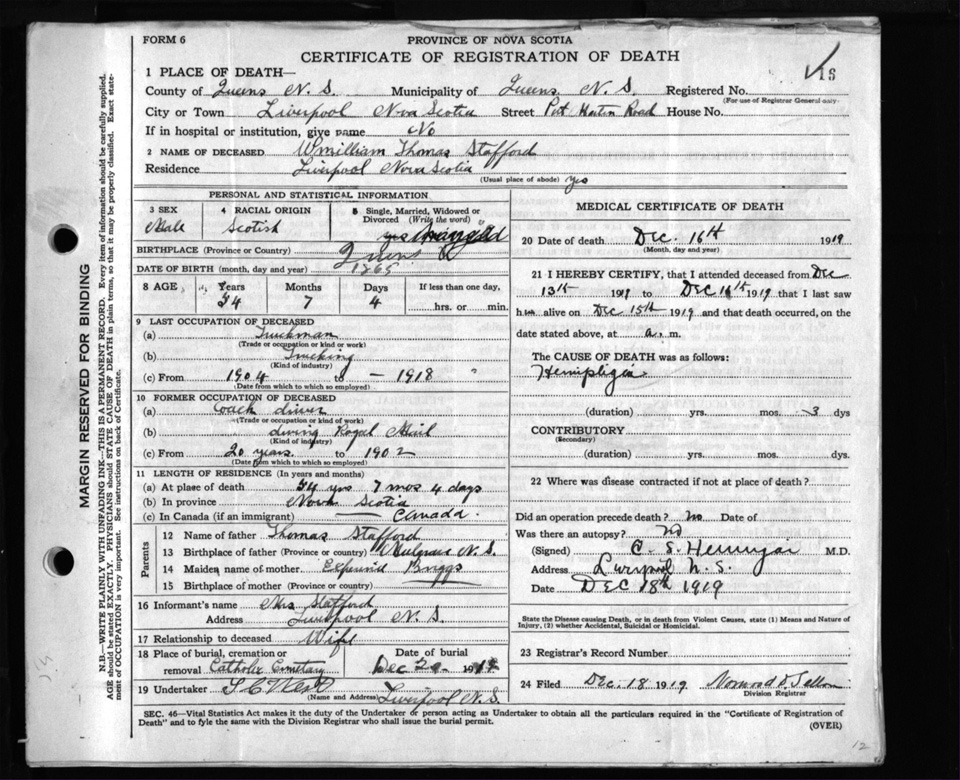 FORM 6
PROVINCE OF NOVA SCOTIA
CERTIFICATE OF REGISTRATION OF DEATH
16
1 PLACE OF DEATH—
County of Queens N. S. Municipality of Queens N. S. Registered No.
(For use of Registrar General only)
City or Town Liverpool Nova Scotia Street Port Road House No.
If in hospital or institution, give name No
2 NAME OF DECEASED William Thomas Stafford
Residence Liverpool Nova Scotia
(Usual place of abode) yes
PERSONAL AND STATISTICAL INFORMATION
3 SEX Male
4 RACIAL ORIGIN Scotish
5 Single, Married, Widowed or Divorced (Write the word) yes
BIRTHPLACE (Province or Country)
DATE OF BIRTH (month, day and year) 1865
8 AGE Years Months Days If less than one day,
54 7 4 hrs. or min.
9 LAST OCCUPATION OF DECEASED
(a) Truckman
(Trade or occupation or kind or work)
(b) Trucking
(Kind of industry)
(c) From 1904 to — 1918
(Date from which to which so employed)
10 FORMER OCCUPATION OF DECEASED
(a) Coach driver
(Trade or occupation or kind of work)
(b) diving Royal Mail
(Kind of industry)
(c) From 20 years to 1902
(Date from which to which so employed)
11 LENGTH OF RESIDENCE (In years and months)
(a) At place of death 54 yrs 7 mos 4 days
(b) In province Nova Scotia
(c) In Canada (if an immigrant) Canada.
Parents
12 Name of father Thomas Stafford
13 Birthplace of father (Province or country) Mulgrave N. S.
14 Maiden name of mother Briggs
15 Birthplace of mother (Province or country)
16 Informant's name Mrs Stafford
Address Liverpool N. S.
17 Relationship to deceased Wife
18 Place of burial, cremation or removal Catholic Cemetary
Date of burial Dec 20 1919
19 Undertaker
(Name and Address) Liverpool N. S.
MEDICAL CERTIFICATE OF DEATH
20 Date of death Dec. 16th 1919
(Month, day and year)
21 I HEREBY CERTIFY, that I attended deceased from Dec
13th 1919 to Dec 16th 1919 that I last saw
him alive on Dec 15th 1919 and that death occurred, on the
date stated above, at a. m.
The CAUSE OF DEATH was as follows:
Hemiplegia
(duration) yrs. mos. 3 dys
CONTRIBUTORY
(Secondary)
(duration) yrs. mos. dys.
22 Where was disease contracted if not at place of death?
Did an operation precede death? No Date of
Was there an autopsy? No
(Signed) M.D.
Address Liverpool N. S.
Date DEC 18th 1919
State the Disease causing Death, or in death from Violent Causes, state (1) Means and Nature of
Injury, (2) whether Accidental, Suicidal or Homicidal.
23 Registrar's Record Number
24 Filed Dec. 18 1919
Division Registrar
SEC. 46—Vital Statistics Act makes it the duty of the Undertaker or person acting as Undertaker to obtain all the particulars required in the "Certificate of Registration of
Death" and to file the same with the Division Registrar who shall issue the burial permit.
(OVER)
12
MARGIN RESERVED FOR BINDING
N.B.—WRITE PLAINLY WITH UNFADING INK—THIS IS A PERMANENT RECORD. Every item of information should be carefully supplied.
AGE should be stated EXACTLY. PHYSICIANS should STATE CAUSE OF DEATH in plain terms, so that it may be properly classified. Exact state-
ment of OCCUPATION is very important. See instructions on back of Certificate.